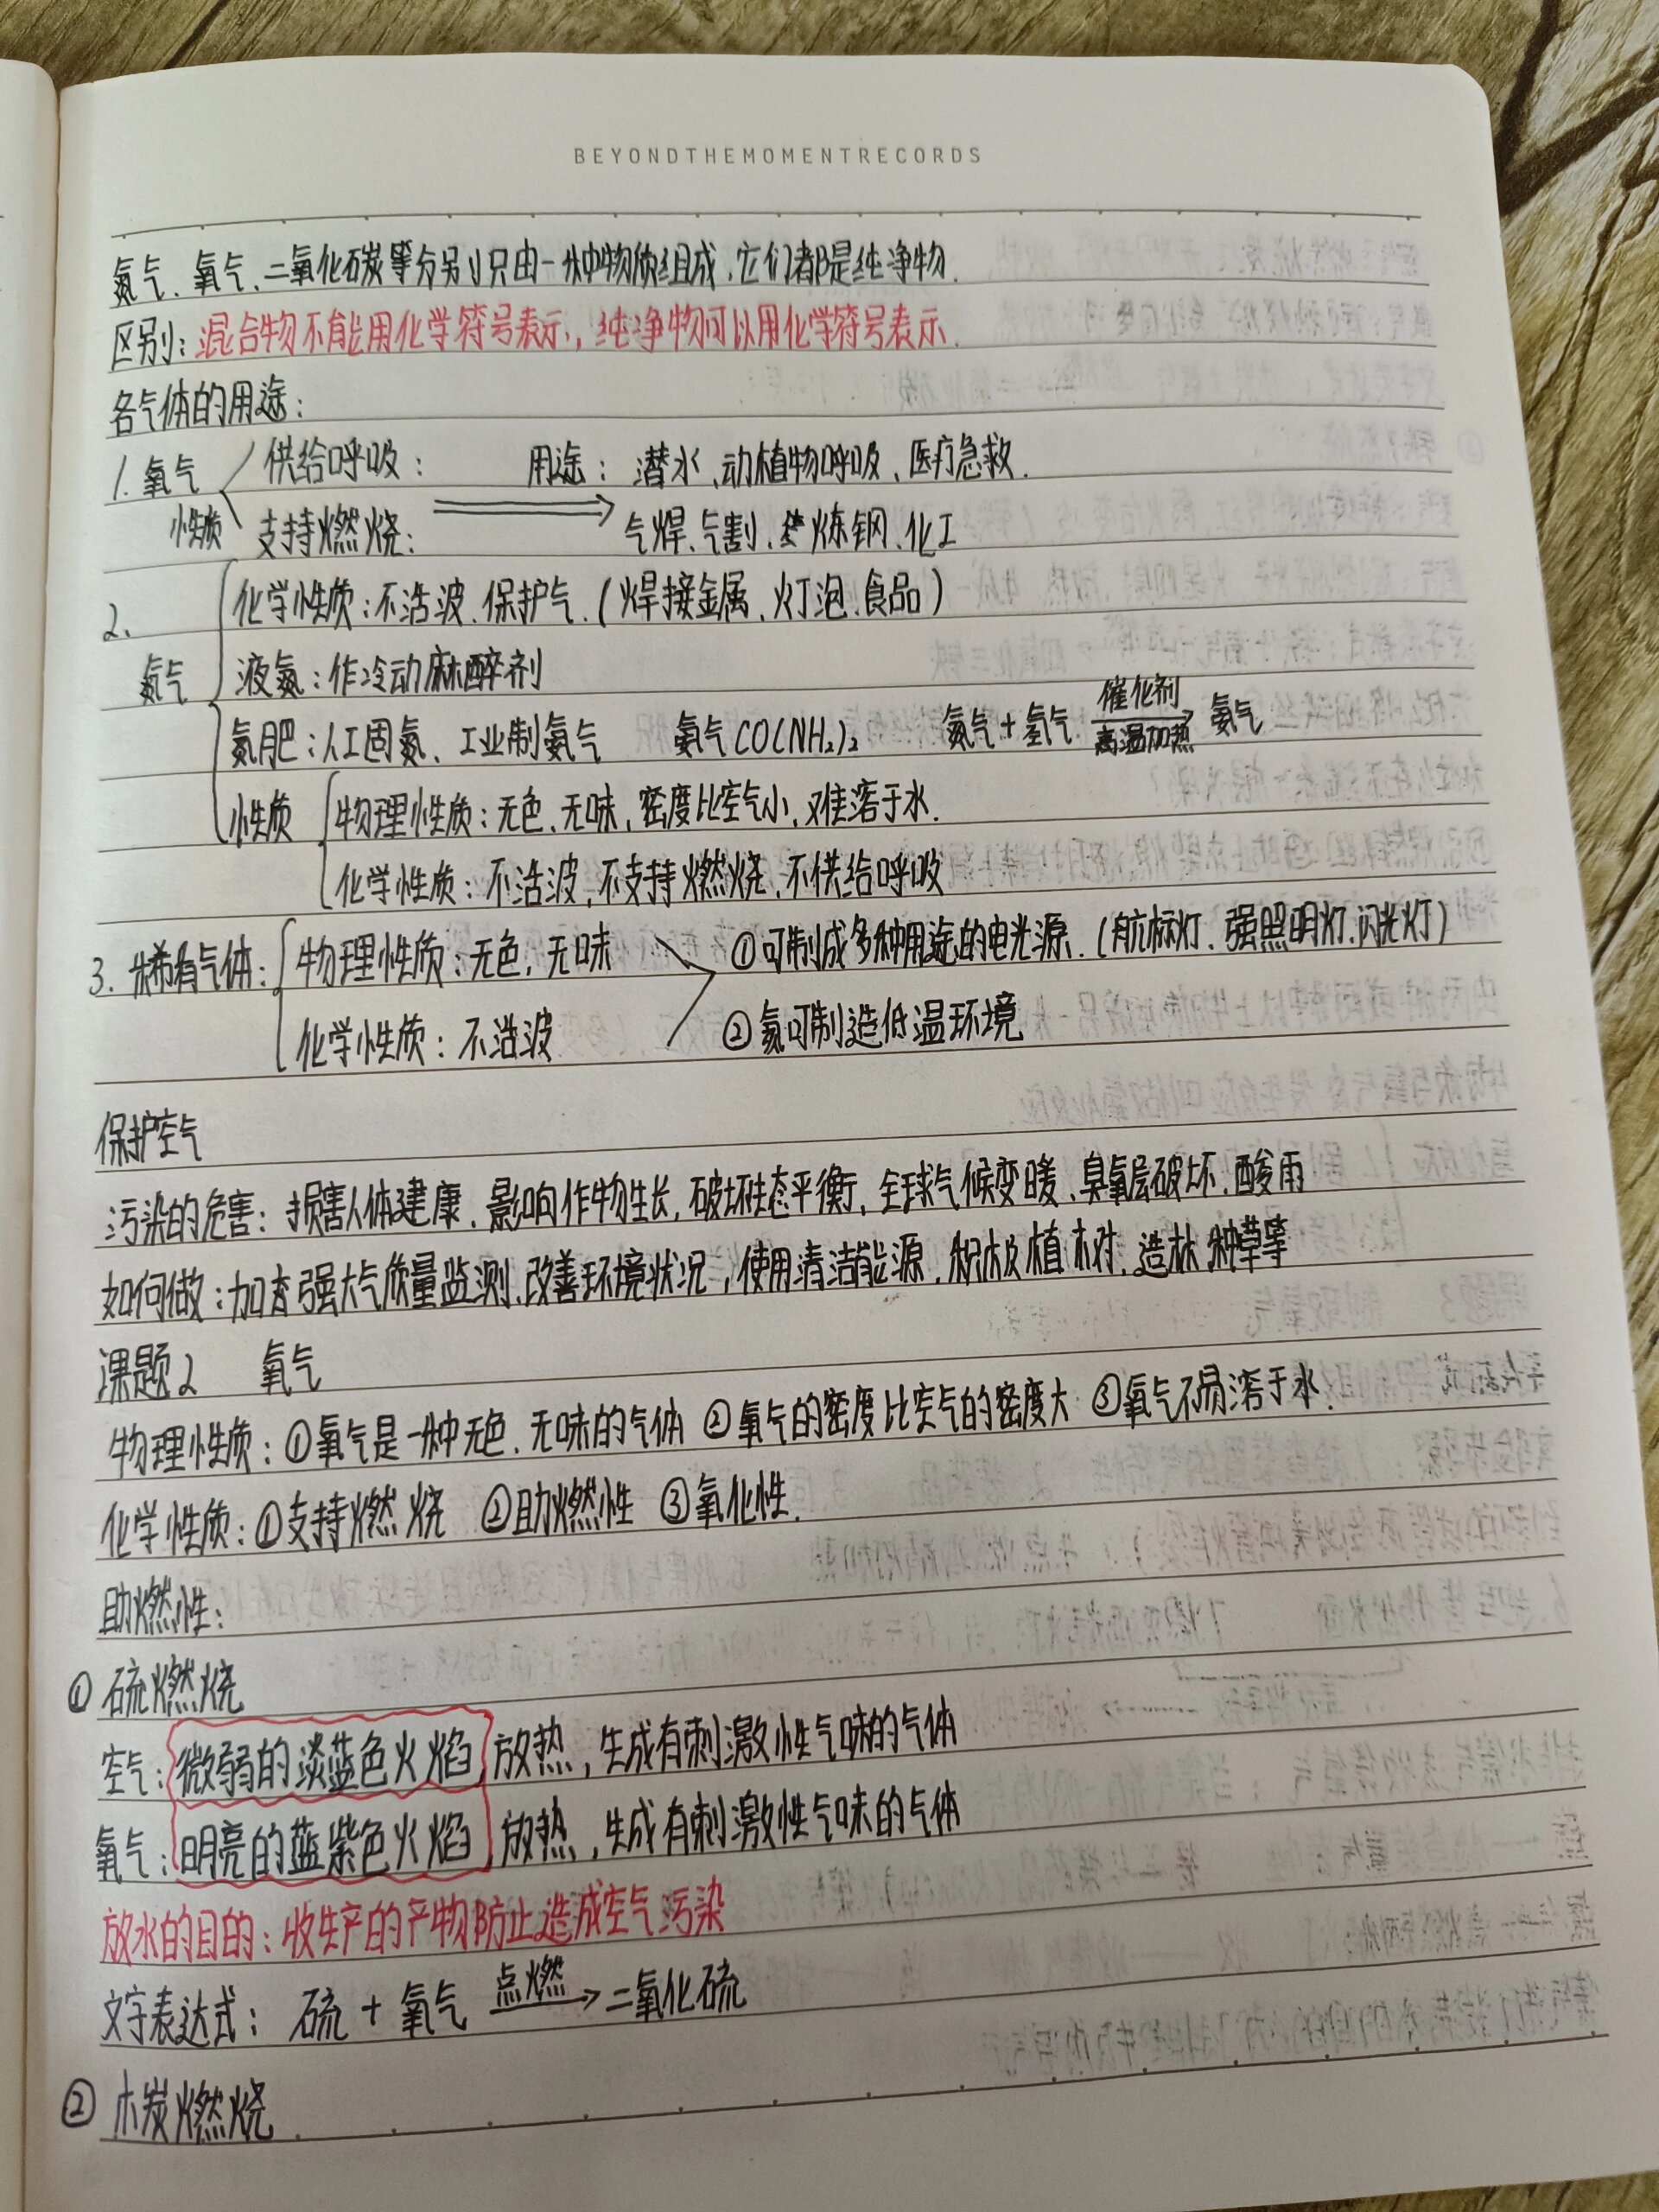 BEYONDTHEMOMENTRECORDS
氮气、氧气、二氧化碳等分别只由一种物质组成，它们都是纯净物.
区别：混合物不能用化学符号表示，纯净物可以用化学符号表示.
各气体的用途：
1. 氧气 供给呼吸： 用途：潜水、动植物呼吸、医疗急救.
性质 支持燃烧： 气焊、气割、炼钢、化工
2. 化学性质：不活波.保护气.(焊接金属、灯泡.食品)
氮气 液氮：作冷动麻醉剂
氮肥：人工固氮、工业制氨气 氨气CO(NH₂)₂ 氮气+氢气 催化剂 高温加热 氨气
性质 物理性质：无色、无味，密度比空气小，难溶于水.
化学性质：不活波，不支持燃烧，不供给呼吸
3. 稀有气体： 物理性质：无色，无味 ①可制成多种用途的电光源.(航标灯、强照明灯.闪光灯)
化学性质：不活波 ②氦可制造低温环境
保护空气
污染的危害：损害人体建康、影响作物生长，破坏生态平衡，全球气候变暖、臭氧层破坏、酸雨
如何做：加强大气质量监测.改善环境状况，使用清洁能源，积极植树、造林、种草等
课题2 氧气
物理性质：①氧气是一种无色、无味的气体 ②氧气的密度比空气的密度大 ③氧气不易溶于水.
化学性质：①支持燃烧 ②助燃性 ③氧化性.
助燃性：
① 硫燃烧
空气：微弱的淡蓝色火焰 放热，生成有刺激性气味的气体
氧气：明亮的蓝紫色火焰 放热，生成有刺激性气味的气体
放水的目的：收生产的产物防止造成空气污染
文字表达式：硫 + 氧气 点燃→ 二氧化硫
② 木炭燃烧